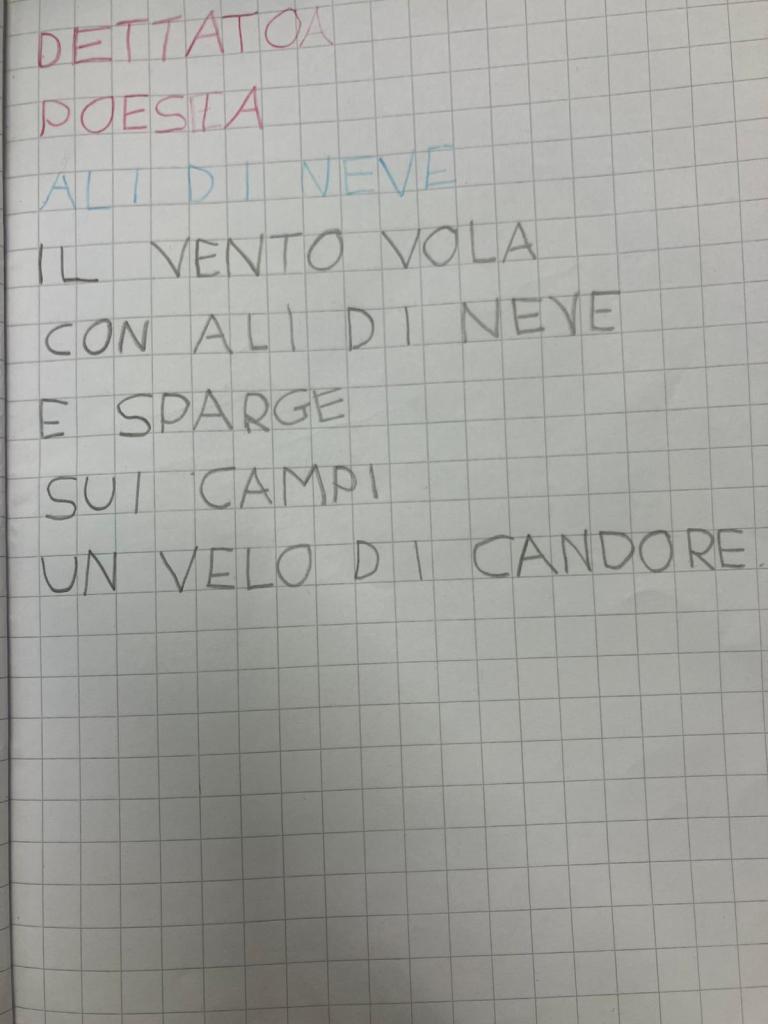 DETTATOA
POESIA
ALI DI NEVE
IL VENTO VOLA
CON ALI DI NEVE
E SPARGE
SUI CAMPI
UN VELO DI CANDORE.